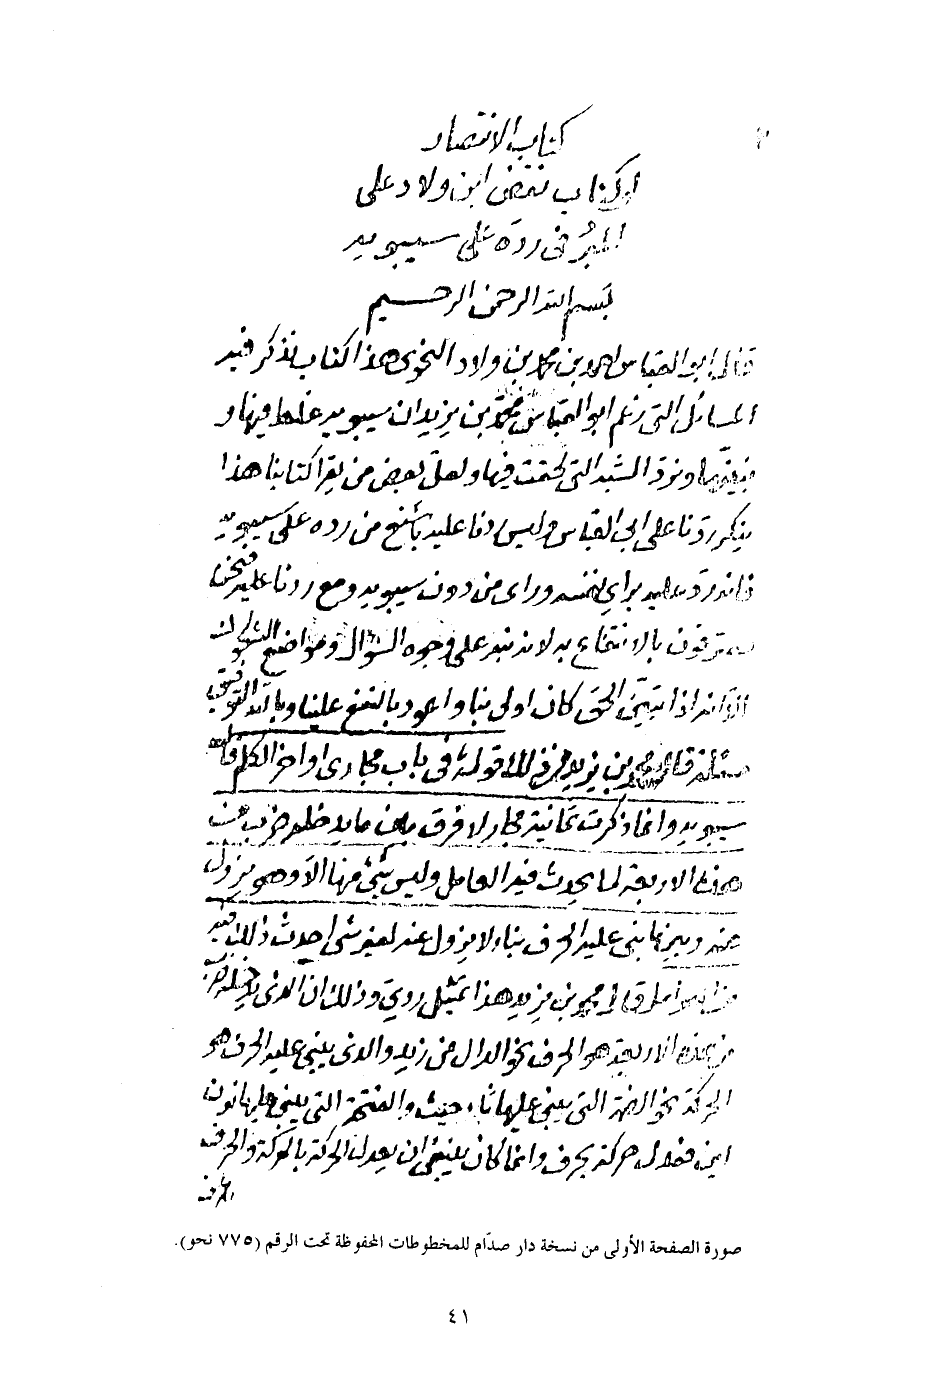 كتاب الانتصار
او كتاب نقض ابن ولاد على
المبرد في رده على سيبويه
بسم الله الرحمن الرحيم
قال ابو العباس احمد بن محمد بن ولاد النحوى هذا كتاب نذكر فيه
المسائل التى زعم ابو العباس محمد بن يزيد ان سيبويه غلط فيها و
نبينها ونرد الشبه التى لحقت فيها ولعل بعض من يقرا كتابنا هذا
ينكر ردنا على ابى العباس وليس ردنا عليه باشنع من رده على سيبويه
فانه رد عليه براي نفسه وراى من دون سيبويه ومع ردنا عليه فنحن
معترفون بالانتفاع به لانه نبه على وجوه السؤال ومواضع الشكوك
الا انه اذا تبين الحق كان اولى بنا واعود بالنفع علينا وبالله التوفيق
مسئلة قال محمد بن يزيد فمن ذلك قوله فى باب مجارى اواخر الكلم قال
سيبويه وانما ذكرت ثمانية مجار لا فرق بين ما يدخله ضرب من
هذه الاربعة لما يحدث فيه العامل وليس شئ منها الا وهو يزول
عنه وبين ما بنى عليه الحرف بناء لا يزول عنه لغير شى احدث ذلك فيه
من العوامل قال محمد بن يزيد هذا تمثيل ردئ وذلك ان الذى يدخله ضرب
من هذه الاربعة هو الحرف نحو الدال من زيد والذى يبنى عليه الحرف هو
الحركة نحو الضمة التى يبنى عليها ثاء حيث والفتحة التى يبنى عليها نون
اين فعدل حركة بحرف وانما كان ينبغى ان يعدل الحركة بالحركة والحرف
بالحرف
صورة الصفحة الأولى من نسخة دار صدّام للمخطوطات المحفوظة تحت الرقم (٧٧٥ نحو).
٤١